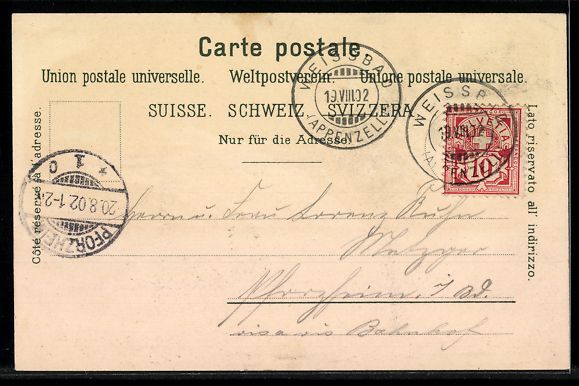 Carte postale
Union postale universelle. Weltpostverein. Unione postale universale.
SUISSE. SCHWEIZ. SVIZZERA.
Nur für die Adresse.
Côté réservé à l'adresse.
Lato riservato all' indirizzo.
WEISSBAD
19.VIII.02
(APPENZELL)
WEISSB
19.VIII.02
HELVETIA
10
PFORZHEIM
20.8.02.1-2
* 1 c
Herrn u. Frau Lorenz Kuhn
Metzger
Pforzheim i/Bd.
vis a vis Bahnhof